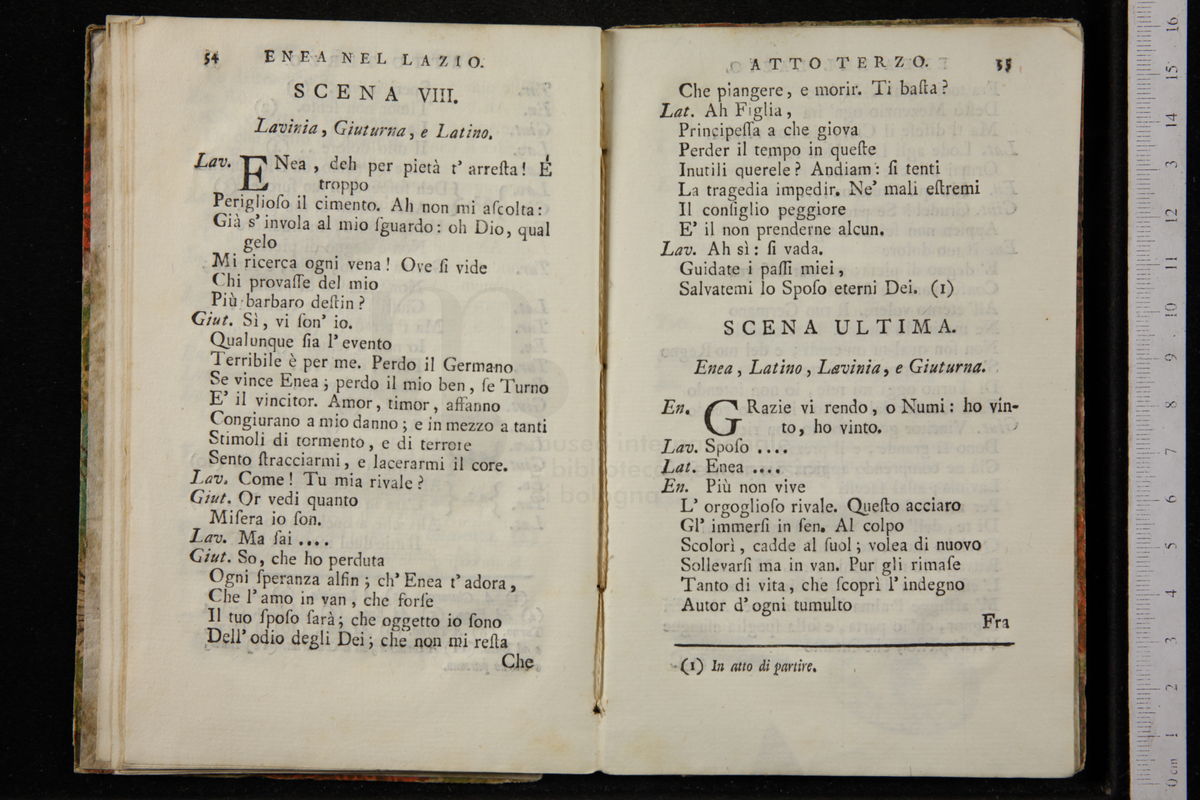 54 ENEA NEL LAZIO.
SCENA VIII.
Lavinia, Giuturna, e Latino.
Lav. ENea, deh per pietà t' arreſta! É
troppo
Periglioſo il cimento. Ah non mi aſcolta:
Già s' invola al mio ſguardo: oh Dio, qual
gelo
Mi ricerca ogni vena! Ove ſi vide
Chi provaſſe del mio
Più barbaro deſtin?
Giut. Sì, vi ſon' io.
Qualunque ſia l' evento
Terribile è per me. Perdo il Germano
Se vince Enea; perdo il mio ben, ſe Turno
E' il vincitor. Amor, timor, affanno
Congiurano a mio danno; e in mezzo a tanti
Stimoli di tormento, e di terrore
Sento ſtracciarmi, e lacerarmi il core.
Lav. Come! Tu mia rivale?
Giut. Or vedi quanto
Miſera io ſon.
Lav. Ma ſai ....
Giut. So, che ho perduta
Ogni ſperanza alfin; ch' Enea t' adora,
Che l' amo in van, che forſe
Il tuo ſpoſo ſarà; che oggetto io ſono
Dell' odio degli Dei; che non mi reſta
Che
ATTO TERZO. 55
Che piangere, e morir. Ti baſta?
Lat. Ah Figlia,
Principeſſa a che giova
Perder il tempo in queſte
Inutili querele? Andiam: ſi tenti
La tragedia impedir. Ne' mali eſtremi
Il conſiglio peggiore
E' il non prenderne alcun.
Lav. Ah sì: ſi vada.
Guidate i paſſi miei,
Salvatemi lo Spoſo eterni Dei. (1)
SCENA ULTIMA.
Enea, Latino, Lavinia, e Giuturna.
En. GRazie vi rendo, o Numi: ho vin-
to, ho vinto.
Lav. Spoſo ....
Lat. Enea ....
En. Più non vive
L' orgoglioſo rivale. Queſto acciaro
Gl' immerſi in ſen. Al colpo
Scolorì, cadde al ſuol; volea di nuovo
Sollevarſi ma in van. Pur gli rimaſe
Tanto di vita, che ſcoprì l' indegno
Autor d' ogni tumulto
Fra
(1) In atto di partire.
museo internazionale
biblioteca
di bologna
0 cm 1 2 3 4 5 6 7 8 9 10 11 12 13 14 15 16